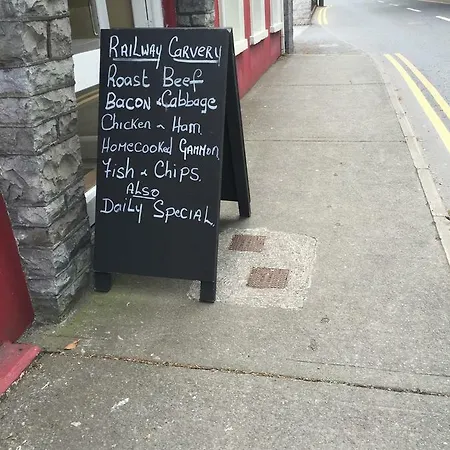 Railway Carvery
Roast Beef
Bacon & Cabbage
Chicken & Ham
Homecooked Gammon
Fish & Chips.
Also
Daily Special